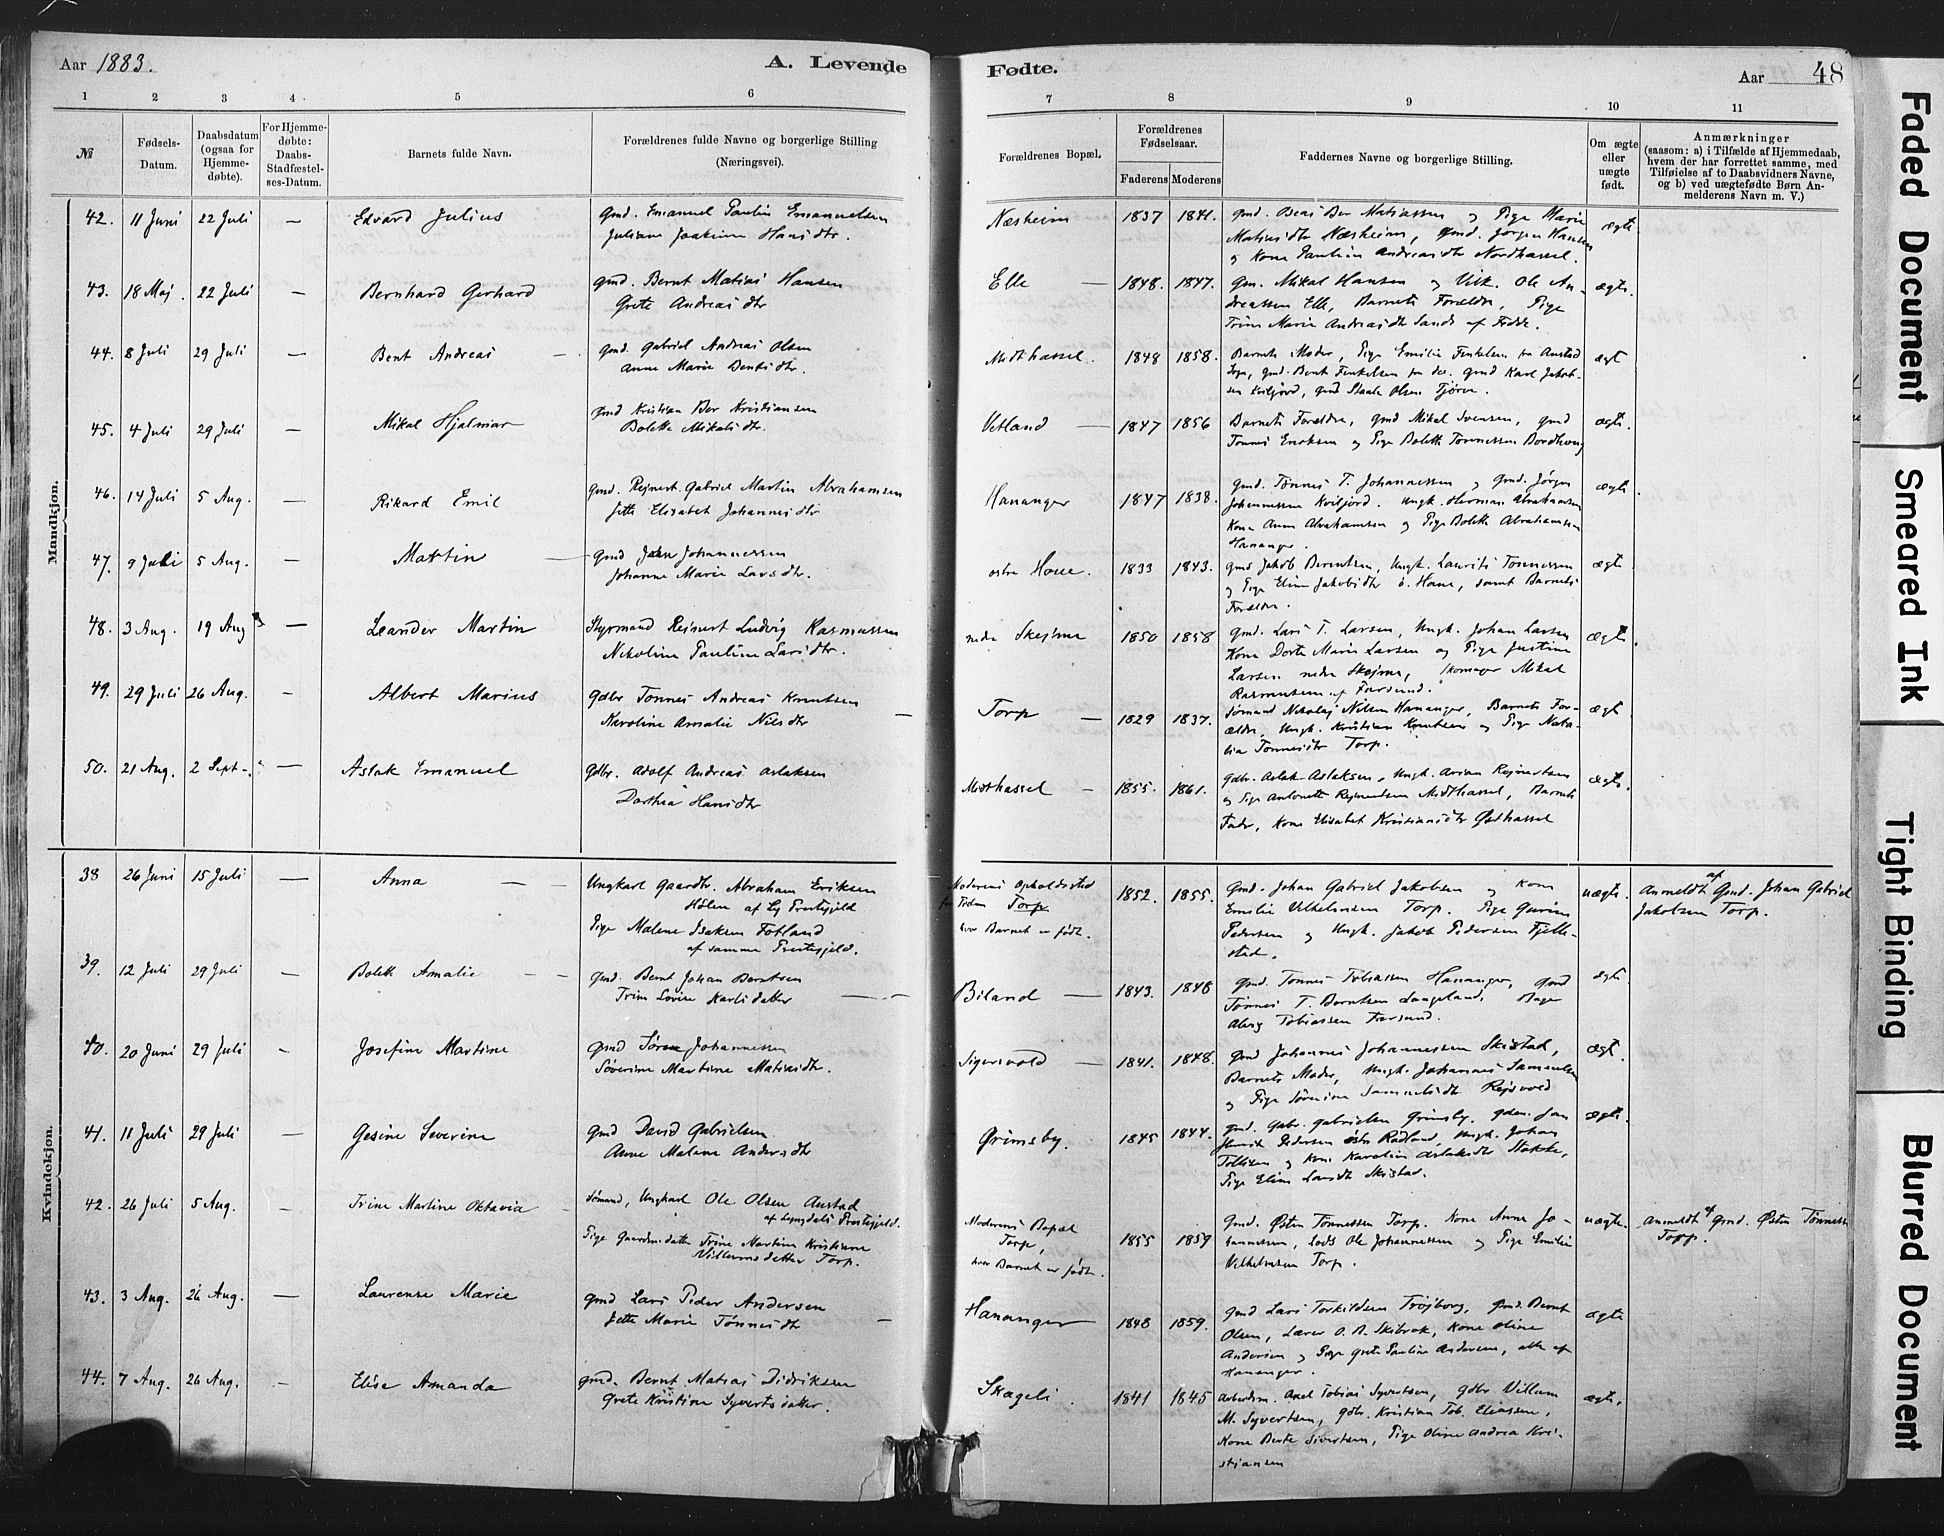 Aar 1883.
A. Levende
Fødte.
Aar 48
1 2 3 4 5 6
7 8 9 10 11
№
Fødsels-
Datum.
Daabsdatum
(ogsaa for
Hjemme-
døbte).
For Hjemme-
døbte:
Daabs-
Stadfæstel-
ses-Datum.
Barnets fulde Navn.
Forældrenes fulde Navne og borgerlige Stilling
(Næringsvei).
Forældrenes Bopæl.
Forældrenes
Fødselsaar.
Faderens
Moderens
Faddernes Navne og borgerlige Stilling.
Om ægte
eller
uægte
født.
Anmærkninger
(saasom: a) i Tilfælde af Hjemmedaab,
hvem der har forrettet samme, med
Tilføielse af to Daabsvidners Navne,
og b) ved uægtefødte Børn An-
melderens Navn m. V.)
Mandkjøn.
42. 11 Juni 22 Juli — Edvard Julius
Gmd. Emanuel Paulin Emanuelsen
Juliane Joakime Hansdtr.
Næsheim 1837 1841.
Gmd. Beas Ber Matiassen og Pige Marie
Matiasdtr Næsheim, Gmd. Jørgen Hansen
og Kone Pauline Andreasdtr Nordhassel.
ægte
43. 18 Maj. 22 Juli — Bernhard Gerhard
Gmd. Bernt Matias Hansen
Grete Andreasdtr
Elle — 1848. 1847.
Gm. Mikal Hansen og Ole An-
dreassen Elle, Barnets Forældre, Pige
Trine Marie Andreasdtr Sande af
ægte.
44. 8 Juli 29 Juli — Bent Andreas —
Gmd. Gabriel Andreas Olsen
Anne Marie Bentsdtr.
Midthassel. 1848 1858.
Barnets Moder, Pige Emilie Fenkelsen fra Austad
Sogn, Gmd. Bernt Fenkelsen fra do. Gmd Karl Jakob-
sen Kviljord, Gmd Staale Olsen Tjørve.
ægte
45. 4 Juli 29 Juli — Mikal Hjalmar
Gmd Kristian Ber Kristiansen
Bolette Mikalsdtr.
Vetland — 1847 1856
Barnets Forældre, Gmd Mikal Svensen, Gmd
Tønnes Eriksen og Pige Bolette Tønnessen Bordhoug
ægte.
46. 14 Juli 5 Aug. — Rikard Emil
Gmd. Rejnert Gabriel Martin Abrahamsen
Jette Elisabet Johannesdtr
Hananger 1847 1838.
Gmd. Tønnes T. Johannessen og Gmd. Jørgen
Johannessen Kviljord. Ungk. Herman Abrahamsen
Kone Anne Abrahamsen og Pige Bolette Abrahamsen
Hananger.
ægte.
47. 9 Juli 5 Aug. — Martin —
Gmd Johannessen
Johanne Marie Larsdtr.
østre Haue. 1833 1843.
Gmd Jakob Berntsen, Ungk. Laurits Tønnessen
og Pige Eline Jakobsdtr ø. Haue, samt Barnets
Forældre.
ægte
48. 3 Aug. 19 Aug — Leander Martin
Styrmand Rejnert Ludvig Rasmussen
Nikoline Pauline Larsdtr.
nedre Skeime 1850 1858
Gmd. Lars T. Larsen, Ungk. Johan Larsen
Kone Dorte Marie Larsen og Pige Justine
Larsen nedre Skejme, Skomager Mikal
Rasmussen af Farsund.
ægte.
49. 29 Juli 26 Aug. — Albert Marius
Gdbr Tønnes Andreas Knutsen
Karoline Amalie Nilsdtr —
Torp — 1829 1837.
Sømand Nikolaj Nilsen Hananger, Barnets For-
ældre, Ungk. Kristian Knutsen og Pige Nata-
lia Tønnesdtr Torp.
ægte
50. 21 Aug. 2 Sept. — Aslak Emanuel
Gdbr. Adolf Andreas Aslaksen
Dorthea Hansdtr
Midthassel — 1855. 1861.
Gdbr. Aslak Aslaksen, Ungk. Arian Rejnertsen
og Pige Antonette Rejnertsen Midthassel, Barnets
Fader, Kone Elisabet Kristiansdtr Østhassel
ægte.
Kvindekjøn.
38 26 Juni 15 Juli — Anna — —
Ungkarl Gaardbr. Abraham Eriksen
Hølen af Ly Prestegjeld
Pige Malene Isaksen Fotland
af samme Prestegjeld.
Moderens Opholdssted
Torp
hvor Barnet er født.
1852. 1855.
Gmd. Johan Gabriel Jakobsen og Kone
Emilie Vilhelmsen Torp. Pige Gurine
Pedersen og Ungk. Jakob Pedersen Fjelle-
stad.
uægte.
Anmeldt af Gmd. Johan Gabriel
Jakobsen Torp.
39. 12 Juli 29 Juli — Bolette Amalie — —
Gmd. Bernt Johan Berntsen
Trine Lovise Karlsdatter — —
Biland — 1843. 1848
Gmd. Tønnes Tobiassen Hananger, Gmd
Tønnes T. Berntsen Langeland, Bager
Tobiassen Farsund.
ægte.
40. 20 Juni 29 Juli — Josefine Martine
Gmd Søren Johannessen
Søverine Martine Matiasdtr.
Sigersvold — 1841. 1848.
Gmd Johannes Johannessen Skistad,
Barnets Moder, Ungk. Johannes Samuelsen
og Pige Sørine Samuelsdtr Rejsvold
ægte.
41. 11 Juli 29 Juli — Gesine Severine
Gmd David Gabrielsen
Anne Malene Andersdtr
Grimsby. 1845 1844.
Gmd. Gabr. Gabrielsen Grimsby, Gdm. Jan
Henrik Pedersen østre Rødland, Ungk. Johan
Tollisen og Kone Karoline Aslaksdtr Stokke,
Pige Eline Larsdtr Skistad.
ægte.
42. 26 Juli 5 Aug. — Trine Martine Oktavia —
Sømand, Ungkarl Ole Olsen Austad
af Lyngdals Prestegjeld.
Pige Gaardmdatter Trine Martine Kristiane
Villumsdatter Torp.
Moderens Bopæl
Torp,
hvor Barnet er født.
1855 1859
Gmd. Østen Tønnessen Torp. Kone Anne Jo-
hannessen, Lods Ole Johannessen og Pige Emilie
Vilhelmsen Torp.
uægte.
Anmeldt af Gmd. Østen Tønnessen
Torp.
43. 3 Aug. 26 Aug. — Laurense Marie
Gmd Lars Peder Andersen
Jette Marie Tønnesdtr —
Hananger 1848 1859.
Gmd Lars Torkildsen Trøjborg, Gmd. Bernt
Olsen, Lærer O. B. Skibrok, Kone Oline
Andersen og Pige Grete Pauline Andersen, alle af
Hananger.
ægte
44. 7 Aug. 26 Aug. — Elise Amanda
Gmd. Bernt Matias Didriksen
Grete Kristine Syvertsdatter.
Skageli. 1841 1845
Arbeidsm. Axel Tobias Syvertsen, Gdbr Villum
M. Syvertsen, Gdbr. Kristian Tob. Eliassen,
Kone Berte Sivertsen, Pige Oline Andrea Kri-
stiansen
ægte.
Faded Document
Smeared Ink
Tight Binding
Blurred Document